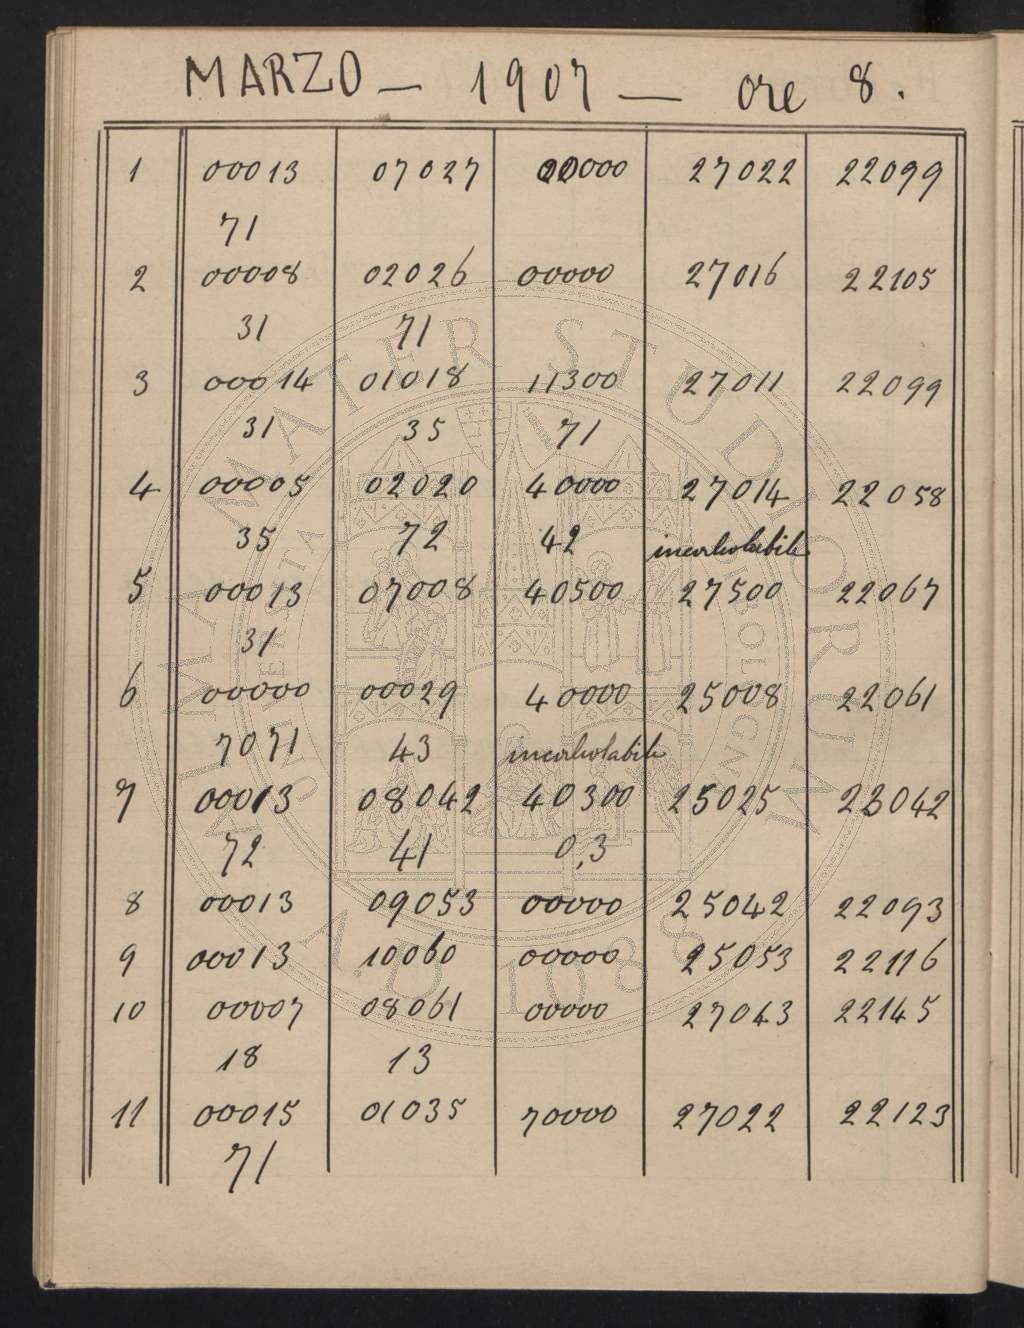 MARZO — 1907 — ore 8.
1 00013 07027 00000 27022 22099
71
2 00008 02026 00000 27016 22105
31 71
3 00014 01018 11300 27011 22099
31 35 71
4 00005 02020 40000 27014 22058
35 72 42 incalcolabile
5 00013 07008 40500 27500 22067
31
6 00000 00029 40000 25008 22061
7071 43 incalcolabile
7 00013 08042 40300 25025 23042
72 41 0,3
8 00013 09053 00000 25042 22093
9 00013 10060 00000 25053 22116
10 00007 08061 00000 27043 22145
18 13
11 00015 01035 70000 27022 22123
71
ALMA MATER STUDIORUM
A.D. 1088